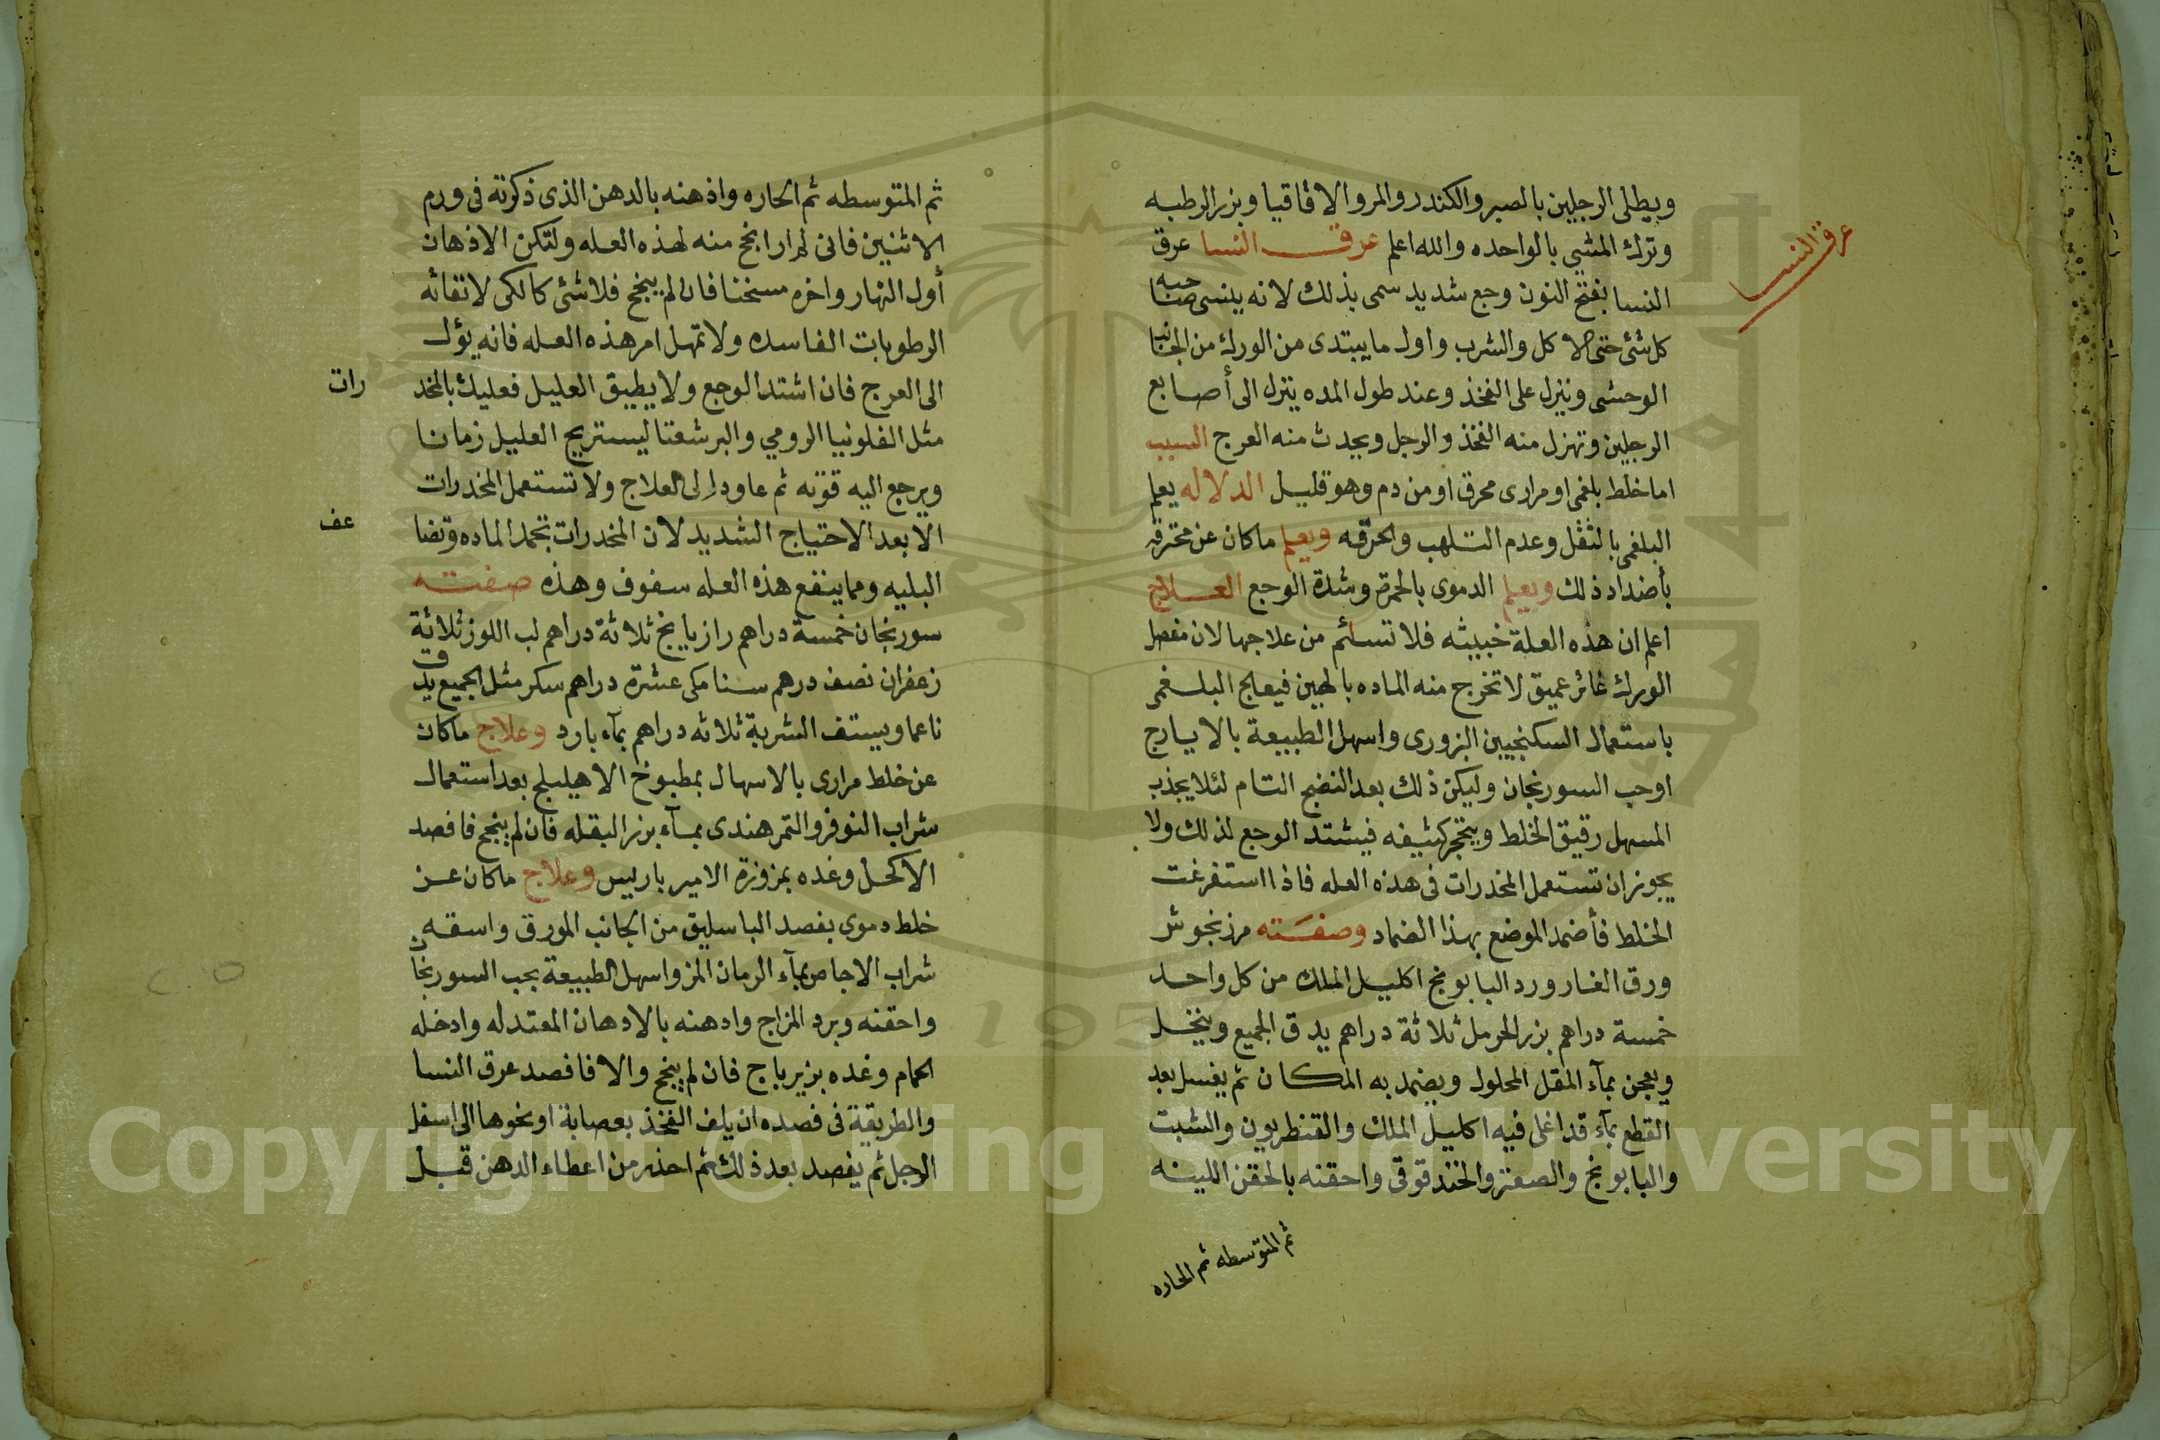 ويطلى الرجلين بالصبر والكندر والمر والاقاقيا وبزر الرطبه
وترك المشي بالواحده والله اعلم عرق النسا عرق
عرق النسا
النسا بفتح النون وجع شديد سمى بذلك لانه ينسى صاحبه
كل شئ حتى الاكل والشرب واول ما يبتدى من الورك من الجانب
الوحشى وينزل على الفخذ وعند طول المده ينزل الى أصابع
الرجلين وتهزل منه الفخذ والرجل ويحدث منه العرج السبب
اما خلط بلغمى او مرارى محرق او من دم وهو قليل الدلاله يعلم
البلغمى بالثقل وعدم التلهب والحرقه ويعلم ما كان عن محترقه
بأضداد ذلك ويعلم الدموى بالحمرة وشدة الوجع العلاج
اعلم ان هذه العلة خبيثه فلا تسئم من علاجها لان مفصل
الورك غائر عميق لا تخرج منه الماده بالهين فيعالج البلغمى
باستعمال السكنجبين البزورى واسهل الطبيعة بالايارج
اوحب السورنجان وليكن ذلك بعد النضج التام لئلا يجذب
المسهل رقيق الخلط ويتحجر كثيفه فيشتد الوجع لذلك ولا
يجوز ان تستعمل المخدرات فى هذه العله فاذا استفرغت
الخلط فأضمد الموضع بهذا الضماد وصفته مرزنجوش
ورق الغار ورد البابونج اكليل الملك من كل واحد
خمسة دراهم بزر الحرمل ثلاثة دراهم يدق الجميع وينخل
ويعجن بمآء المقل المحلول ويضمد به المكان ثم يغسل بعد
القطع بمآء قد اغلى فيه اكليل الملك والقنطريون والشبت
والبابونج والصعتر والحندقوقى واحقنه بالحقن اللينه
ثم المتوسطه ثم الحاره
ثم المتوسطه ثم الحاره واذهنه بالدهن الذى ذكرته فى ورم
الاثنيين فانى لم ارا انجح منه لهذه العله ولتكن الاذهان
أول النهار واخره مسخنا فان لم ينجح فلا شئ كالكى لاتقائه
الرطوبات الفاسده ولا تمهل امر هذه العله فانه يؤل
الى العرج فان اشتد الوجع ولا يطيق العليل فعليك بالمخد
رات
مثل الفلونيا الرومي والبرشعثا ليستريح العليل زمانا
ويرجع اليه قوته ثم عاود الى العلاج ولا تستعمل المخدرات
الا بعد الاحتياج الشديد لان المخدرات تجمد الماده وتضا
عف
البليه ومما ينفع هذه العله سفوف وهذه صفته
سورنجان خمسة دراهم رازيانج ثلاثة دراهم لب اللوز ثلاثة
زعفران نصف درهم سنا مكى عشرة دراهم سكر مثل الجميع يدق
ناعما ويستف الشربة ثلاثه دراهم بمآء بارد وعلاج ما كان
عن خلط مرارى بالاسهال بمطبوخ الاهليلج بعد استعمال
شراب النوفر والتمر هندى بمآء بزر البقله فان لم ينجح فافصد
الاكحل وغده بمزوزة الامير باريس وعلاج ما كان عن
خلط دموى بفصد الباسليق من الجانب المورق واسقه
شراب الاجاص بمآء الرمان المز واسهل الطبيعة بحب السورنجان
واحقنه وبرد المزاج وادهنه بالادهان المعتدله وادخله
الحمام وغده بزيرباج فان لم ينجح والا فافصد عرق النسا
والطريقة فى فصده ان يلف الفخذ بعصابة او نحوها الى اسفل
الرجل ثم يفصد بعد ذلك ثم احذر من اعطاء الدهن قبل
Copyright © King Saud University
195